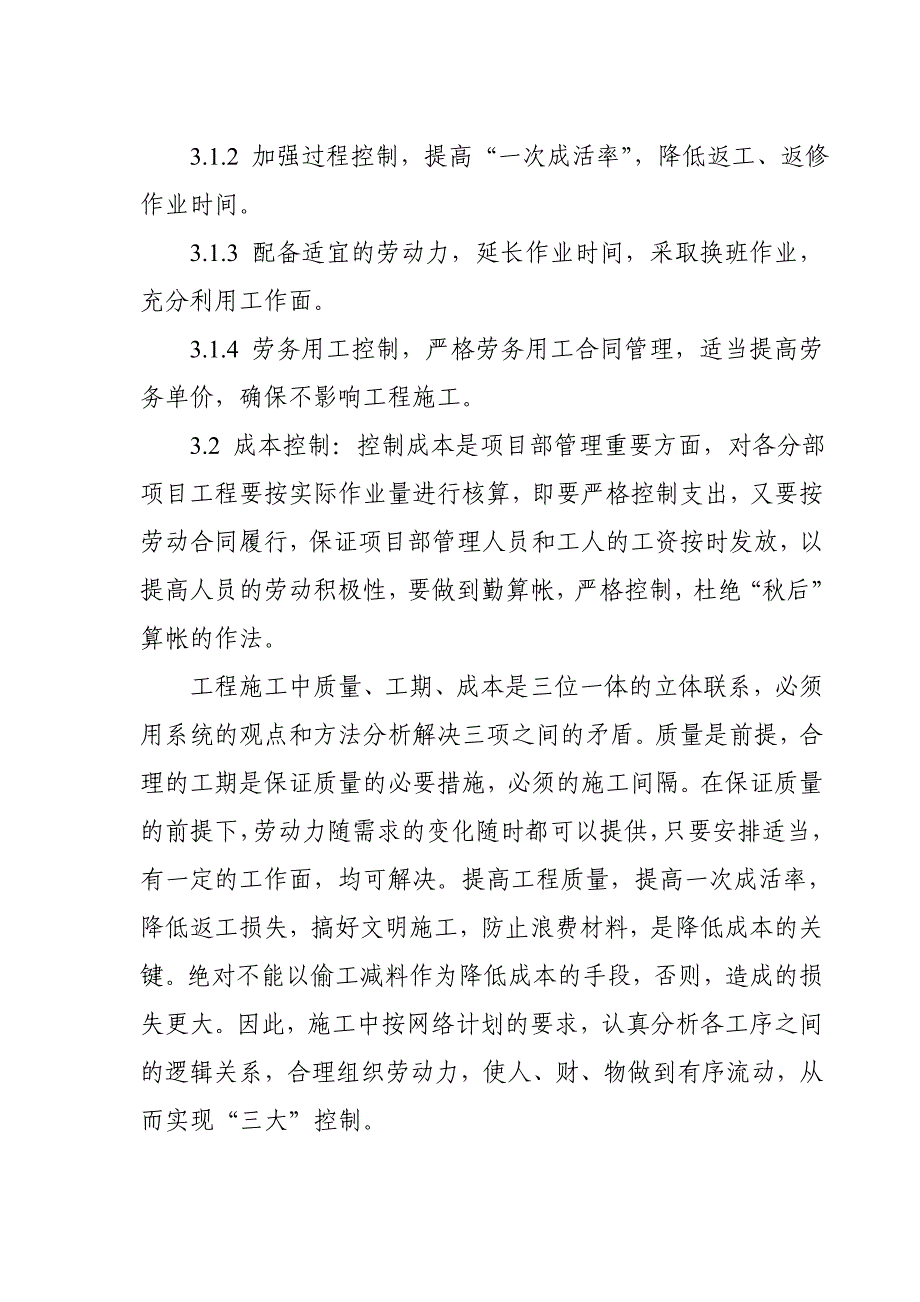 3.1.2 加强过程控制，提高“一次成活率”，降低返工、返修
作业时间。
3.1.3 配备适宜的劳动力，延长作业时间，采取换班作业，
充分利用工作面。
3.1.4 劳务用工控制，严格劳务用工合同管理，适当提高劳
务单价，确保不影响工程施工。
3.2 成本控制：控制成本是项目部管理重要方面，对各分部
项目工程要按实际作业量进行核算，即要严格控制支出，又要按
劳动合同履行，保证项目部管理人员和工人的工资按时发放，以
提高人员的劳动积极性，要做到勤算帐，严格控制，杜绝“秋后”
算帐的作法。
工程施工中质量、工期、成本是三位一体的立体联系，必须
用系统的观点和方法分析解决三项之间的矛盾。质量是前提，合
理的工期是保证质量的必要措施，必须的施工间隔。在保证质量
的前提下，劳动力随需求的变化随时都可以提供，只要安排适当，
有一定的工作面，均可解决。提高工程质量，提高一次成活率，
降低返工损失，搞好文明施工，防止浪费材料，是降低成本的关
键。绝对不能以偷工减料作为降低成本的手段，否则，造成的损
失更大。因此，施工中按网络计划的要求，认真分析各工序之间
的逻辑关系，合理组织劳动力，使人、财、物做到有序流动，从
而实现“三大”控制。